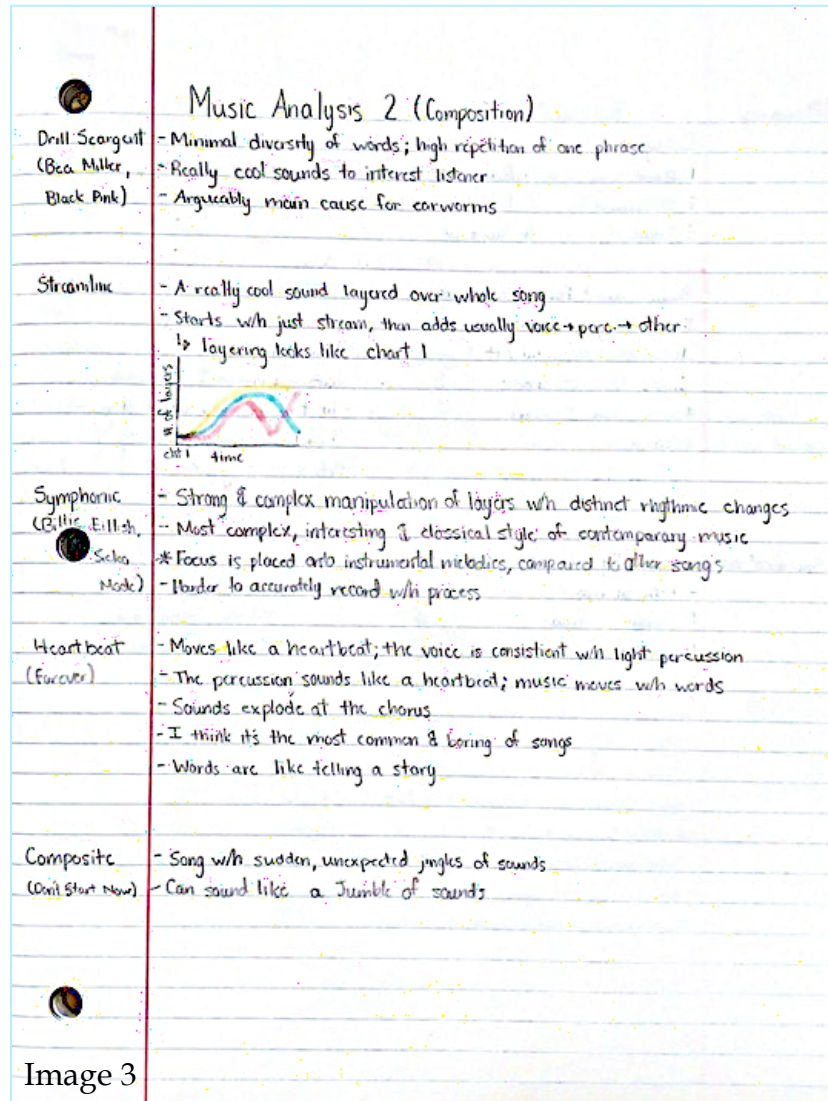 Music Analysis 2 (Composition)
Drill Seargent - Minimal diversity of words; high repetition of one phrase
(Bea Miller, - Really cool sounds to interest listener
Black Pink) - Argueably main cause for earworms
Streamline - A really cool sound layered over whole song
- Starts w/h just stream, then adds usually voice→perc.→other
↳ layering looks like chart 1
#. of layers
cht 1 time
Symphonic - Strong & complex manipulation of layers w/h distinct rhythmic changes
(Billie Eillish, - Most complex, interesting & classical style of contemporary music
* Focus is placed onto instrumental melodies, compared to other songs
Mode) - Harder to accurately record w/h process
Heartbeat - Moves like a heartbeat; the voice is consistient w/h light percussion
(Forever) - The percussion sounds like a heartbeat; music moves w/h words
- Sounds explode at the chorus
- I think it's the most common & boring of songs
- Words are like telling a story
Composite - Song w/h sudden, unexpected jingles of sounds
(Don't Start Now) - Can sound like a Jumble of sounds
Image 3